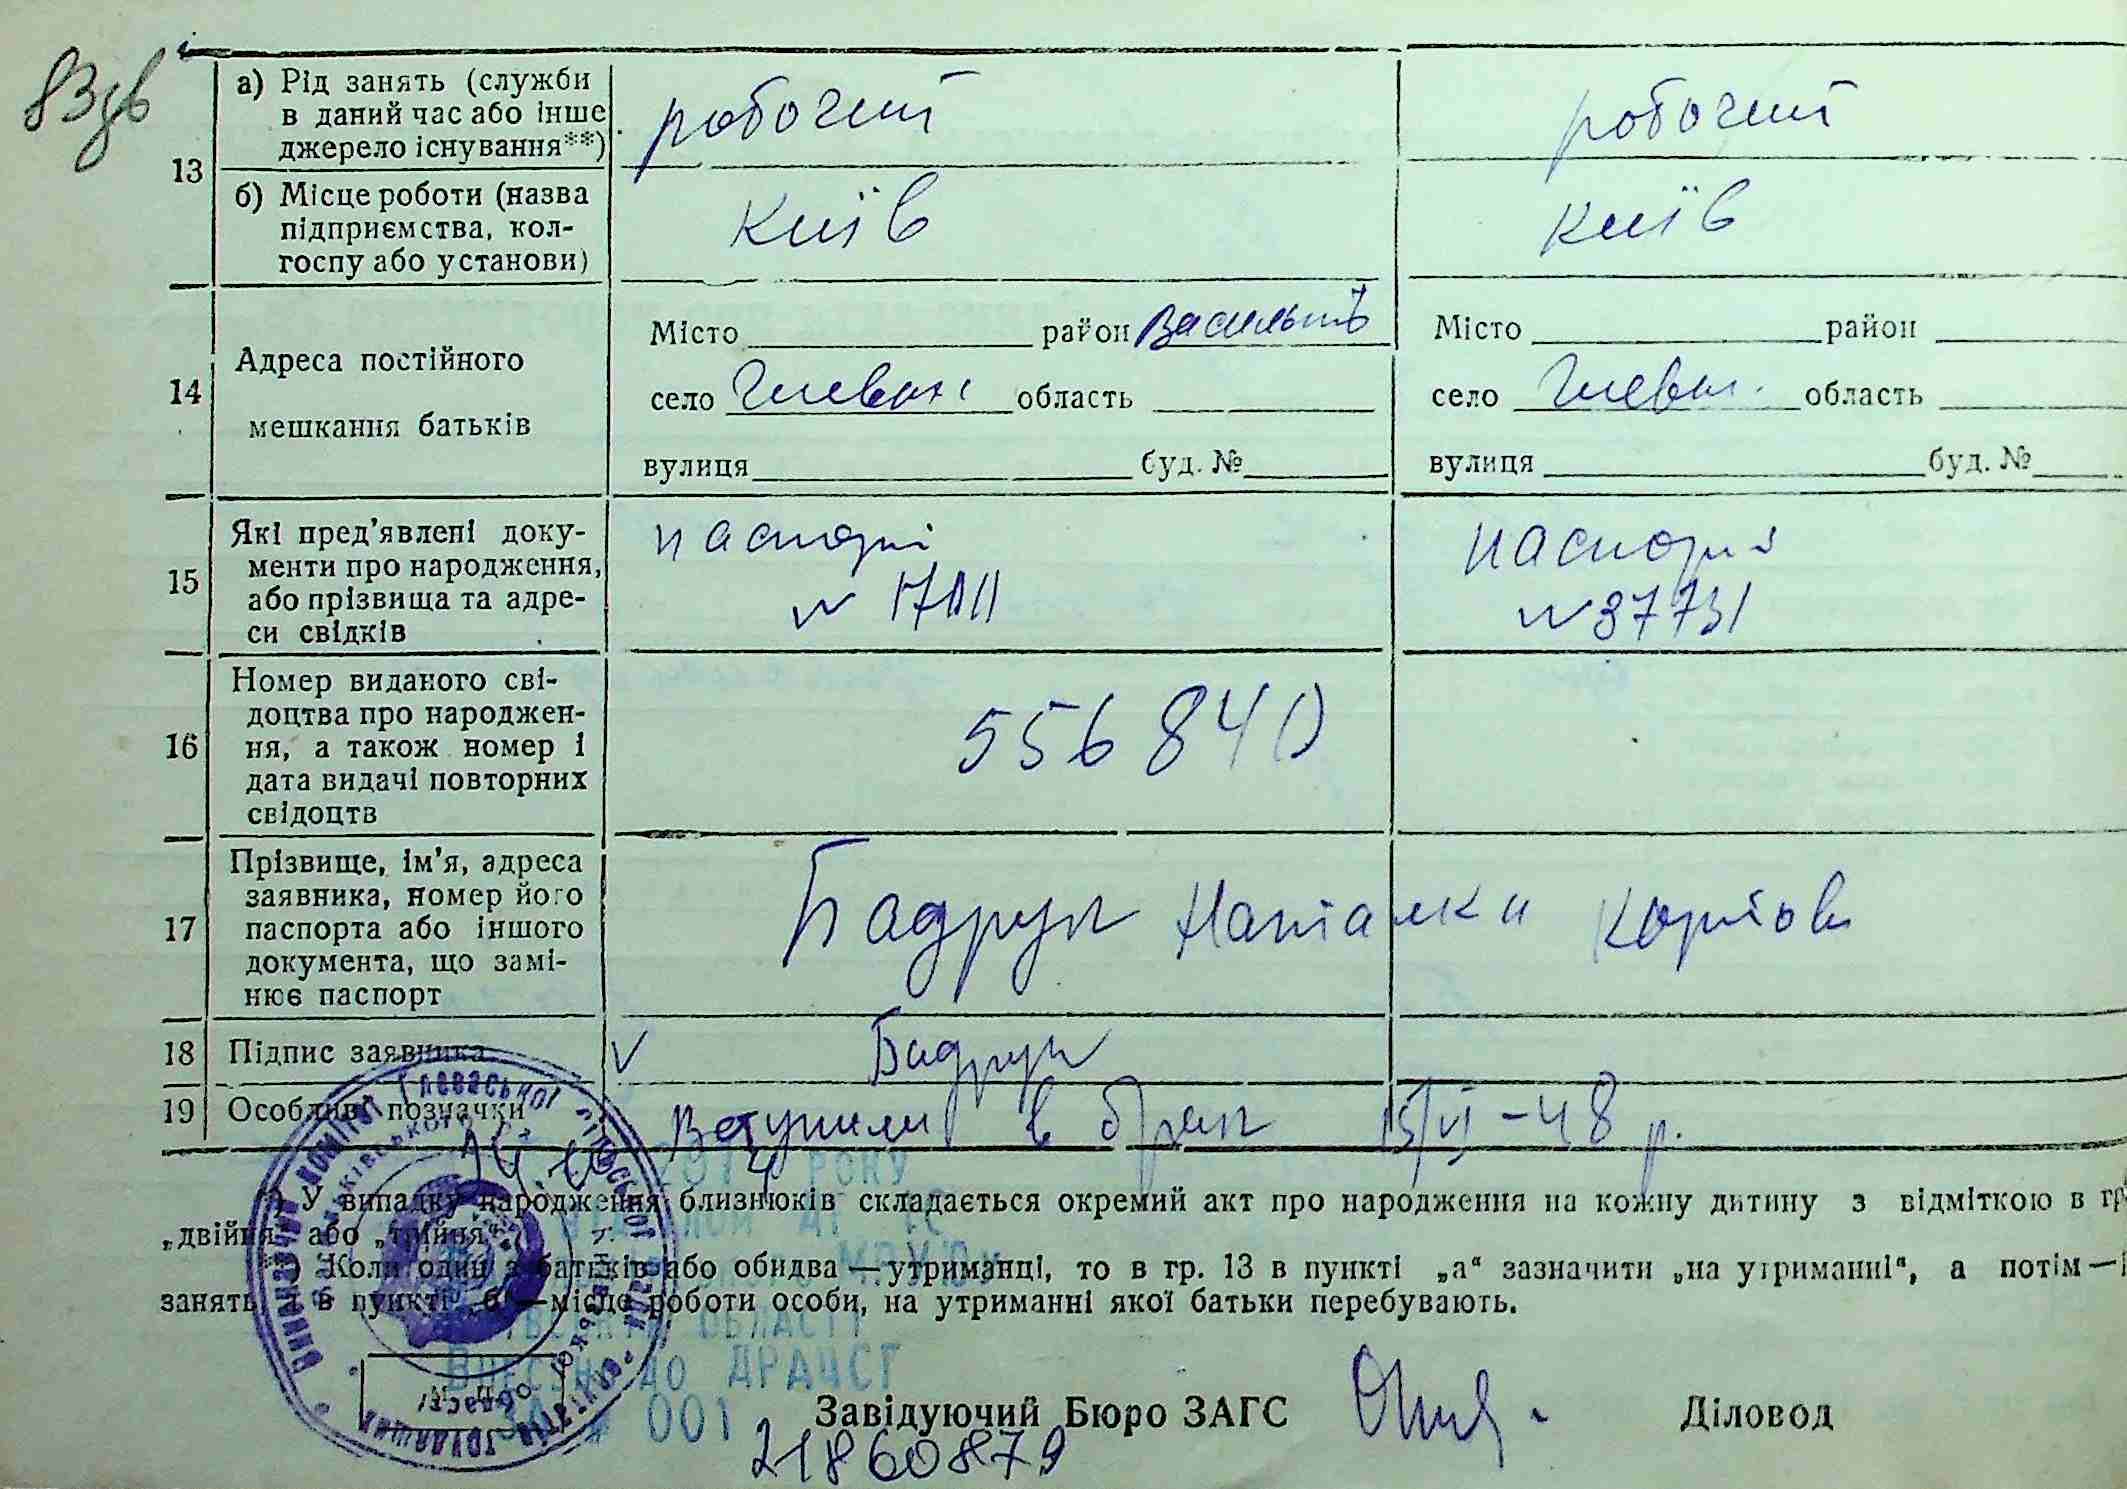 83зв
13
а) Рід занять (служби
в даний час або інше
джерело існування**)
робочий
робочий
б) Місце роботи (назва
підприємства, кол-
госпу або установи)
Київ
Київ
14
Адреса постійного
мешкання батьків
Місто район Васильків
село Глеваха область
вулиця буд. №
Місто район
село Глеваха область
вулиця буд. №
15
Які пред’явлені доку-
менти про народження,
або прізвища та адре-
си свідків
паспорт
№
паспорт
№ 37731
16
Номер виданого сві-
доцтва про народжен-
ня, а також номер і
дата видачі повторних
свідоцтв
556840
17
Прізвище, ім’я, адреса
заявника, номер його
паспорта або іншого
документа, що замі-
нює паспорт
Бадрук Наталки
18 Підпис заявника
Бадрук
19 Особливі позначки
Вступили в брак 15/VI-48 р.
*) У випадку народження близнюків складається окремий акт про народження на кожну дитину з відміткою в гр
„двійня“ або „трійня“.
**) Коли один з батьків або обидва — утриманці, то в гр. 13 в пункті „а“ зазначити „на утриманні“, а потім —
занять, і в пункті „б“ — місце роботи особи, на утриманні якої батьки перебувають.
Виконавчий комітет Глеваської сільської ради
2014 РОКУ
ОБЛАСТІ
ВНЕСЕНО ДО ДРАЦСГ
ЗА № 001
21860879
Завідуючий Бюро ЗАГС
Діловод